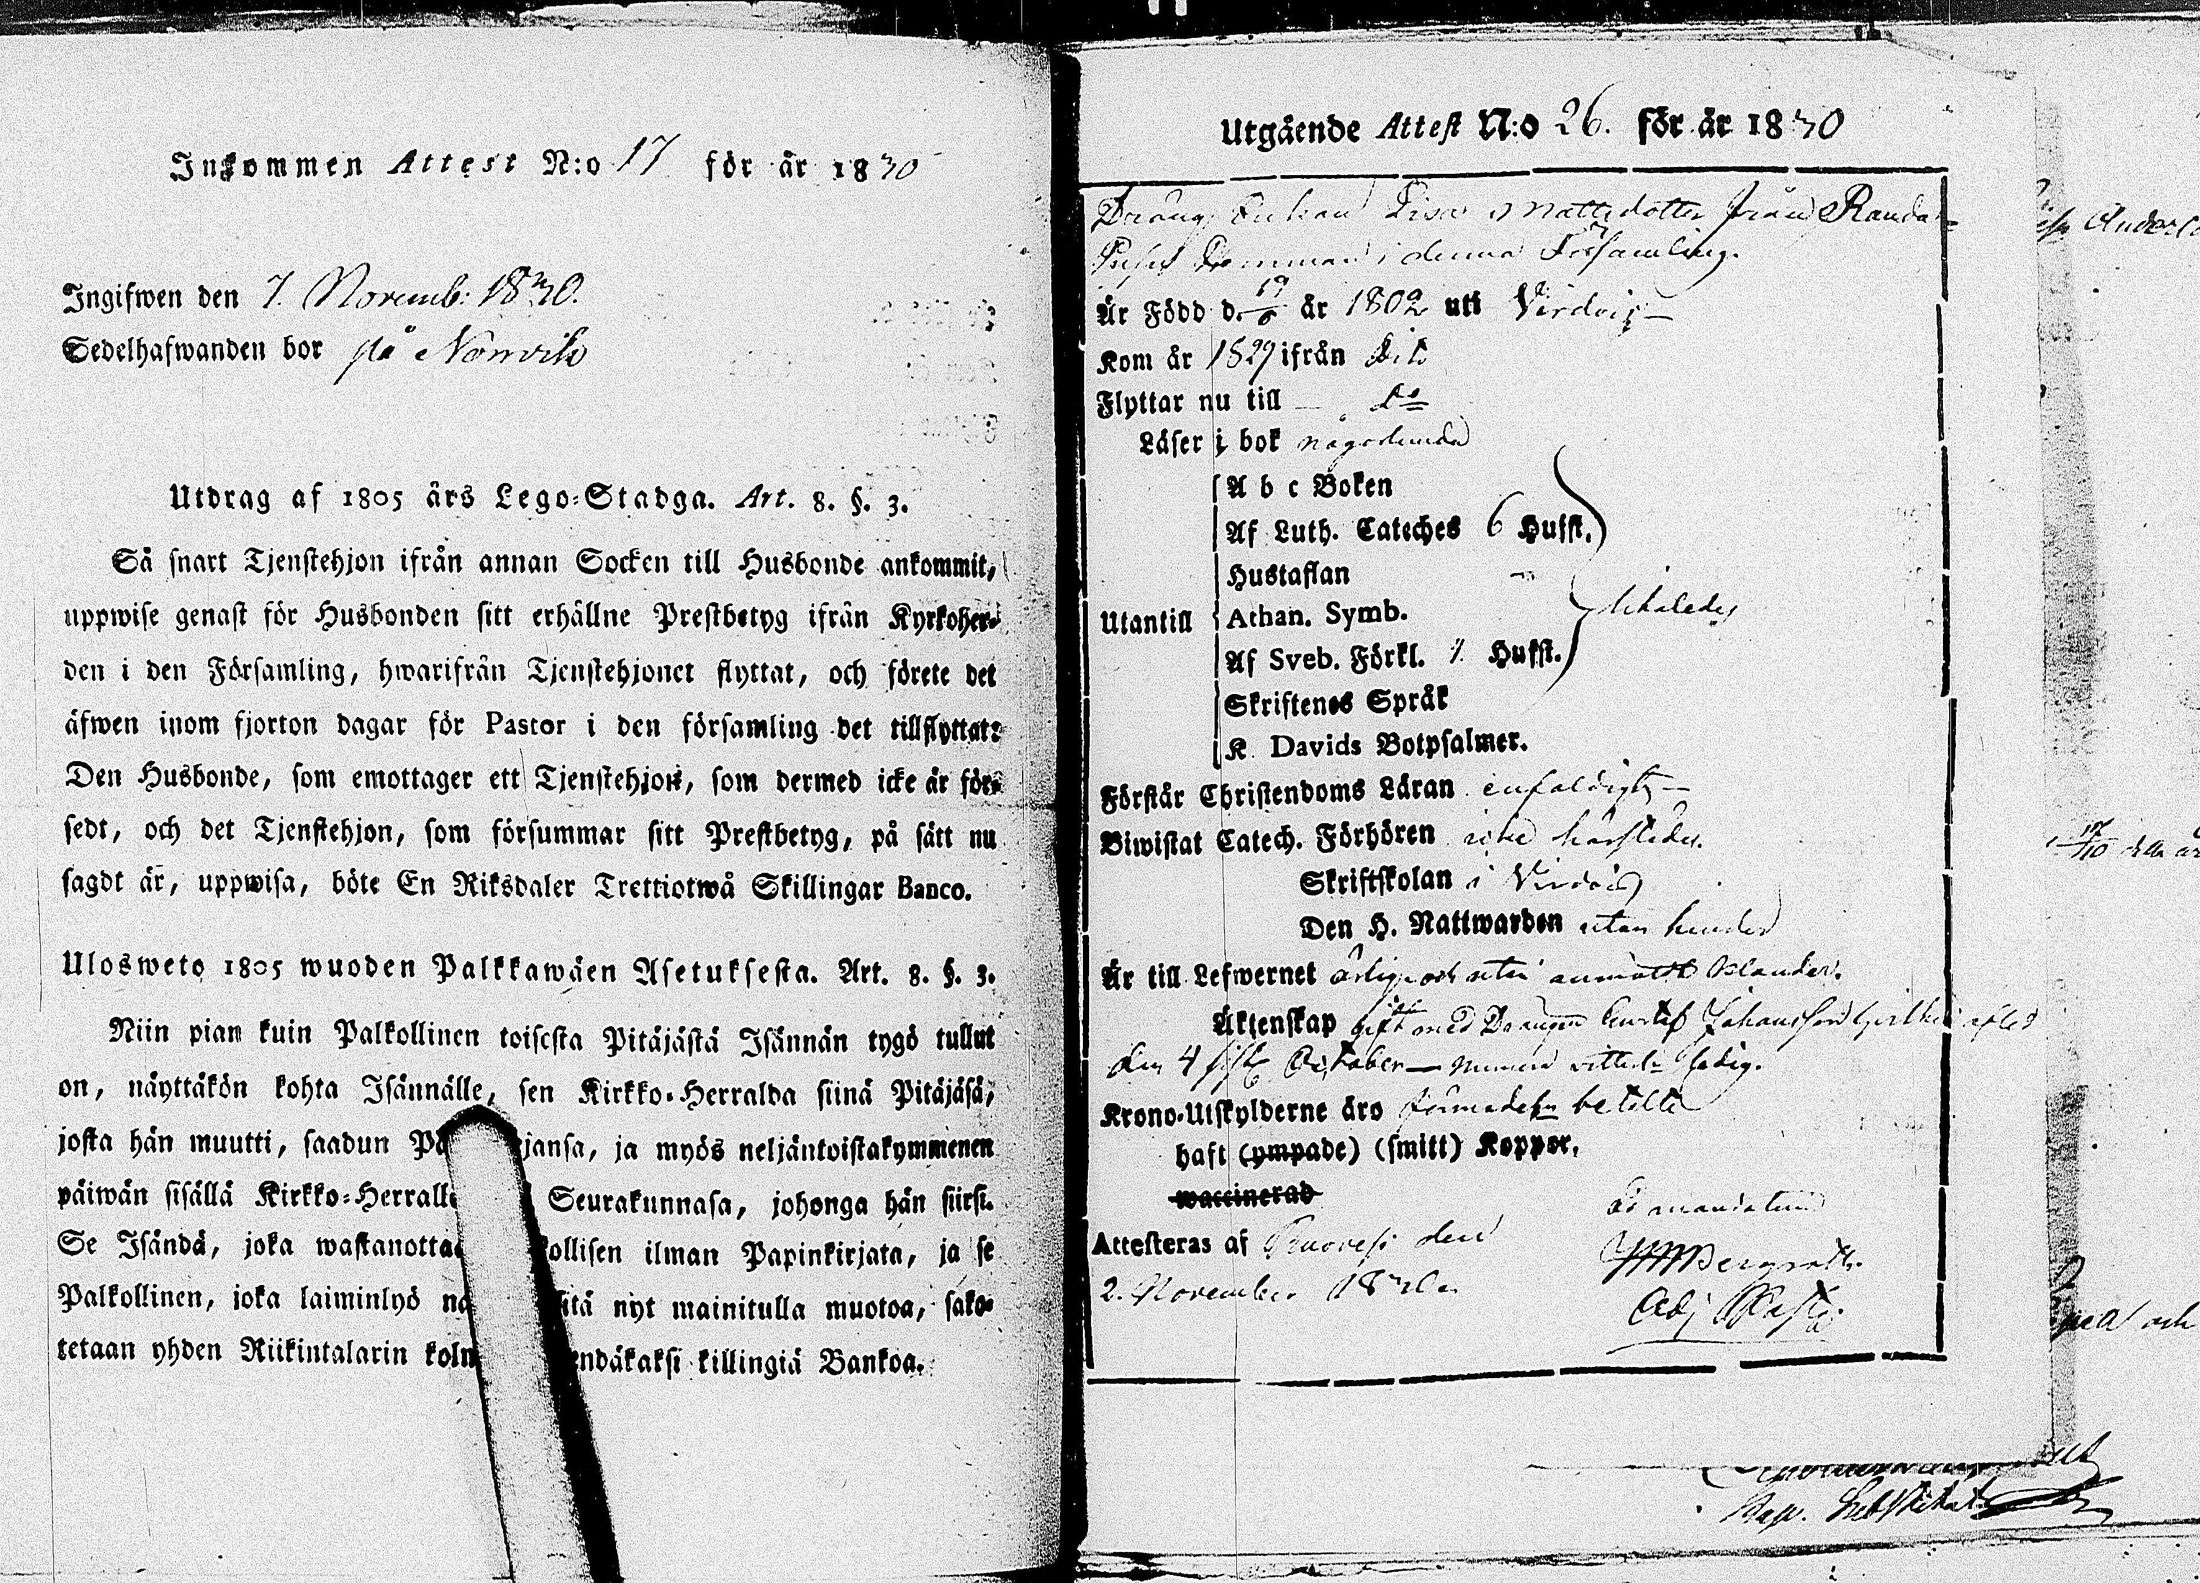 Inkommen Attest N:o 17 för år 1830
Ingifwen den 7. Novemb: 1830.
Sedelhafwanden bor på
Utdrag af 1805 års Lego-Stadga. Art. 8. §. 3.
Så snart Tjenstehjon ifrån annan Socken till Husbonde ankommit,
uppwise genast för Husbonden sitt erhållne Prestbetyg ifrån Kyrkoher-
den i den Församling, hwarifrån Tjenstehjonet flyttat, och förete det
äfwen inom fjorton dagar för Pastor i den församling det tillflyttat:
Den Husbonde, som emottager ett Tjenstehjon, som dermed icke är för-
sedt, och det Tjenstehjon, som försummar sitt Prestbetyg, på sätt nu
sagdt är, uppwisa, böte En Riksdaler Trettiotwå Skillingar Banco.
Ulosweto 1805 wuoden Palkkawäen Asetuksesta. Art. 8. §. 3.
Niin pian kuin Palkollinen toisesta Pitäjästä Isännän tygö tullut
on, näyttäkön kohta Isännälle, sen Kirkko-Herralda siinä Pitäjäsä,
josta hän muutti, saadun jansa, ja myös neljäntoistakymmenen
päiwän sisällä Kirkko-Herralle Seurakunnasa, johonga hän siirsi.
Se Isändä, joka wastanottaa kollisen ilman Papinkirjata, ja se
Palkollinen, joka laiminlyö sitä nyt mainitulla muotoa, sako-
tetaan yhden Riikintalarin kolm endäkaksi killingiä Bankoa.
Utgående Attest N:o 26. för år 1830
Dräng Enkan Lisa Mattsdotter från
i denna Församling.
Är Född d. 19/6 år 1802 uti Virdois
Kom år 1829 ifrån Dito
Flyttar nu till do
Läser i bok någorlunda
A b c Boken
Af Luth. Cateches 6 Hufst.
Hustaflan
Utantill Athan. Symb. likaledes
Af Sveb. Förkl. 7. Hufst.
Skriftenes Språk
K. Davids Botpsalmer.
Förstår Christendoms Läran enfaldigt
Biwistat Catech. Förhören icke härstädes.
Skriftskolan i Virdois
Den H. Nattwarden utan hinder
Är till Lefwernet ärlig och utan anmält klander.
Äktenskap gift med Drängen Gustaf Johansson hvilken afled
den 4 sistl. October numera ledig.
Krono-Utskylderne äro betalte
haft (ympade) (smitt) Koppor.
waccinerad
Attesteras af Ruovesi den
2. November 1830.
Ad mandatum
Bergroth.
Adj